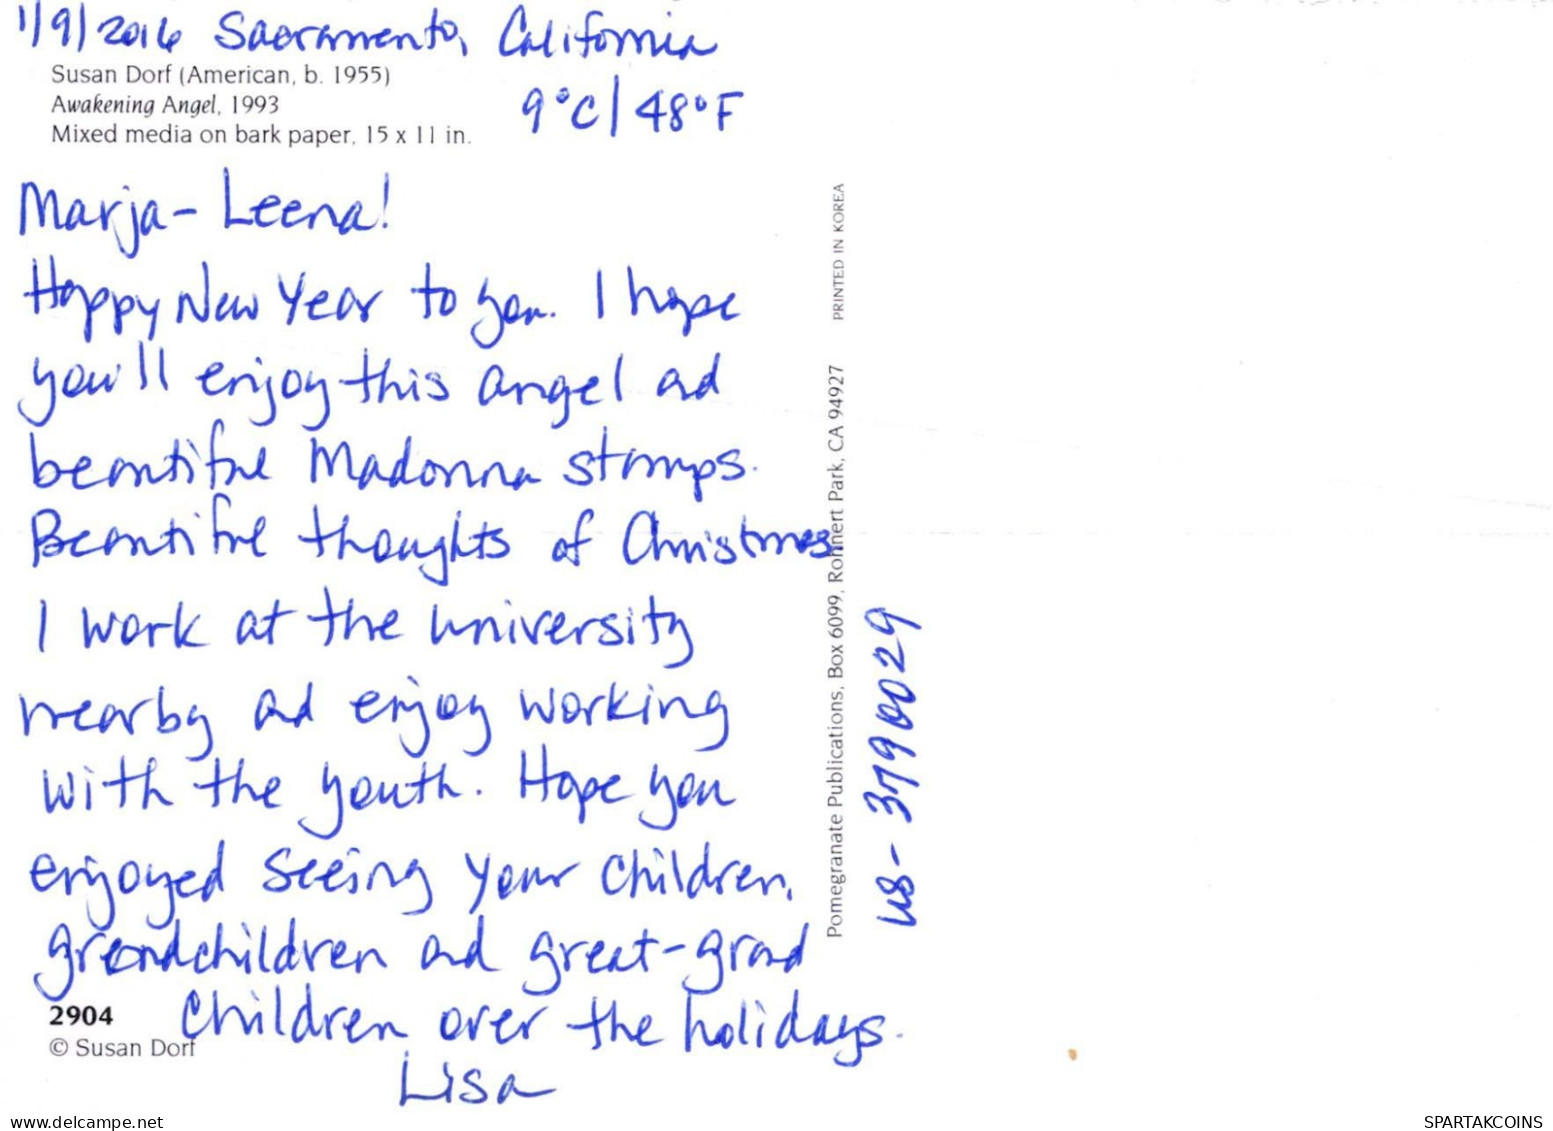 1/9/2016 Sacramento, California
Susan Dorf (American, b. 1955)
Awakening Angel, 1993
9°C/48°F
Mixed media on bark paper, 15 x 11 in.
Marja-Leena!
Happy New Year to you. I hope
you'll enjoy this angel ad
beautiful Madonna stamps.
Beautiful thoughts of Christmas.
I work at the university
nearby ad enjoy working
with the youth. Hope you
enjoyed seeing your children,
grandchildren ad great-grad
children over the holidays.
Lisa
2904
© Susan Dorf
Pomegranate Publications, Box 6099, Rohnert Park, CA 94927
PRINTED IN KOREA
US-3790029
delcampe.net
SPARTAKCOINS